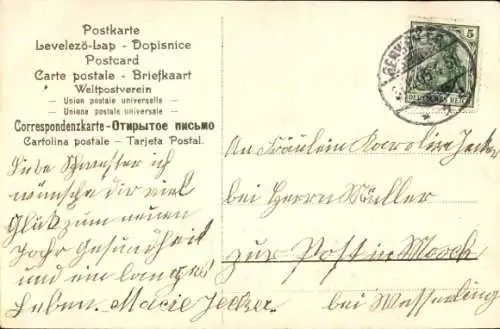 Postkarte
Levelező-Lap - Dopisnice
Postcard
Carte postale - Briefkaart
Weltpostverein
- Union postale universelle -
- Uniona postale universale -
Correspondenzkarte - Открытое письмо
Cartolina postale - Tarjeta Postal.
Liebe Schwester ich
wünsche dir viel
Glük zum neuen
Jahr Gesundheit
und ein langes
Leben. Marie
An Fräulein Karolina
bei Herrn Müller
zur Post in Mosch
bei Wesserling
5
DEUTSCHES REICH